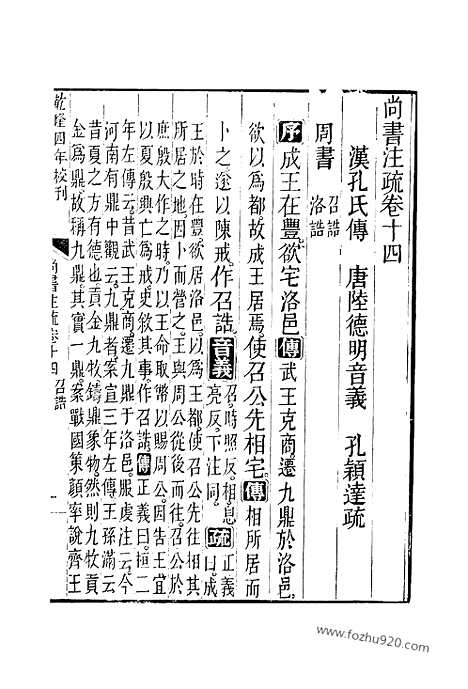 尚書注疏卷十四
漢孔氏傳　唐陸德明音義　孔穎達疏
周書
召誥
洛誥
序成王在豐欲宅洛邑傳武王克商遷九鼎於洛邑
欲以爲都故成王居焉使召公先相宅傳相所居而
卜之遂以陳戒作召誥音義召時照反相息亮反下注同疏正義曰成
王於時在豐欲居洛邑以爲王都使召公先往相其
所居之地因卜而營之王與周公從後而往召公於
庶殷大作之時乃以王命取幣以賜周公因告王宜
以夏殷興亡爲戒史敘其事作召誥傳正義曰桓二
年左傳云昔武王克商遷九鼎于洛邑服虔注云今
河南有鼎中觀云九鼎者案宣三年左傳王孫滿云
昔夏之方有德也貢金九牧鑄鼎象物然則九牧貢
金爲鼎故稱九鼎其實一鼎案戰國策顏率說齊王
乾隆四年校刊
尚書注疏卷十四　召誥
一
www.fozhu920.com